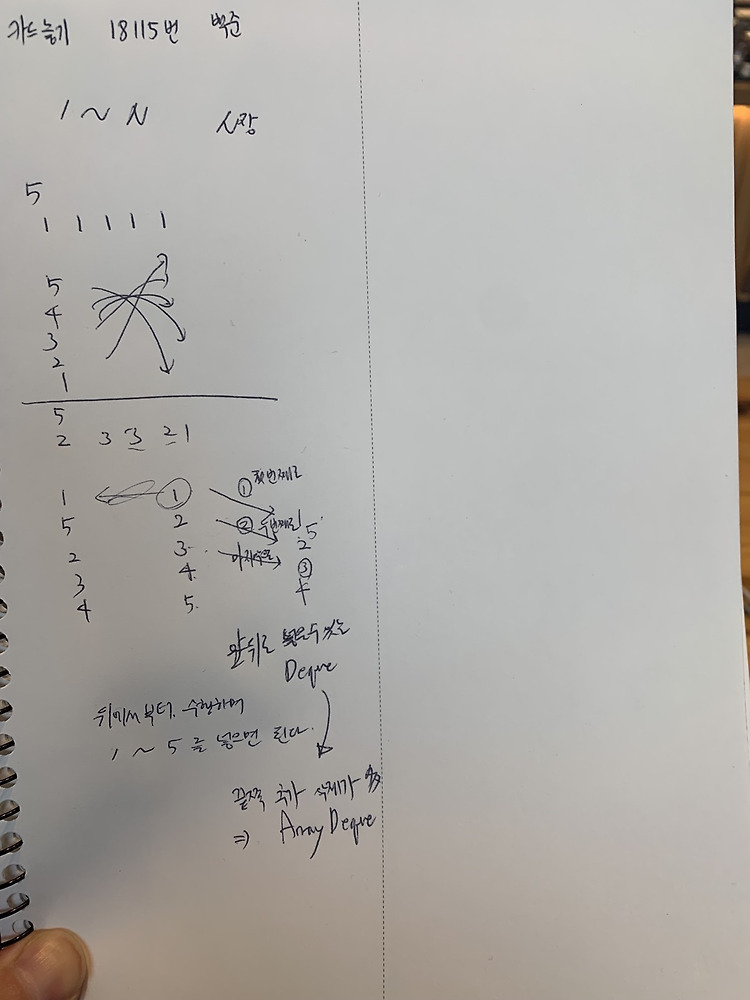 카드 놓기 18115번 백준
1 ~ N 시장
5
1 1 1 1 1
5
4
3
2
1
5
2 3 3 2 1
1 1 ① 첫번째로
5 2 ② 두번째로 5
2 3 마지막으로 2
3 4 ③
4 5 4
앞뒤로 넣을수 있는
Deque
뒤에서 부터 수행하며
1 ~ 5 를 넣으면 된다.
끝쪽 추가 삭제가
⇒ ArrayDeque